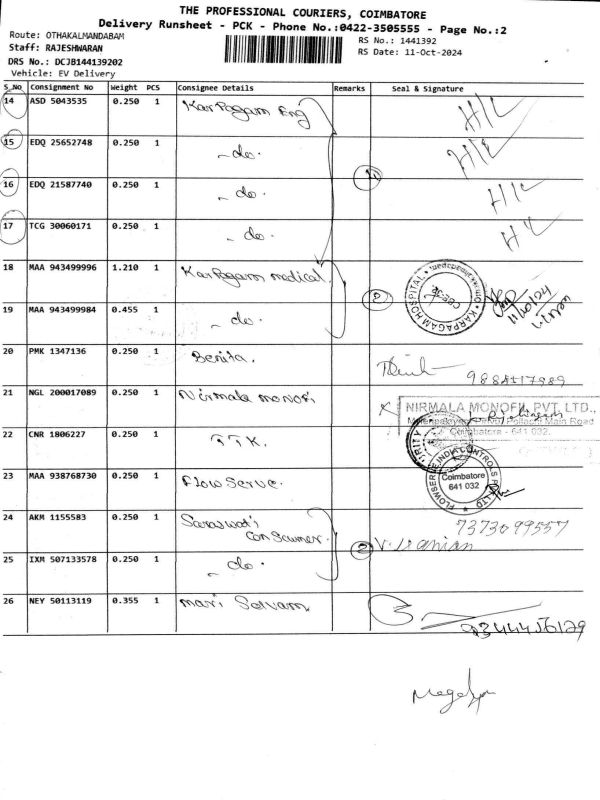 THE PROFESSIONAL COURIERS, COIMBATORE
Delivery Runsheet - PCK - Phone No.:0422-3505555 - Page No.:2
Route: OTHAKALMANDABAM
RS No.: 1441392
Staff: RAJESHWARAN
RS Date: 11-Oct-2024
DRS No.: DCJB144139202
Vehicle: EV Delivery
S_No Consignment No Weight PCS Consignee Details Remarks Seal & Signature
14 ASD 5043535 0.250 1 Karpagam Eng H/L
15 EDQ 25652748 0.250 1 - do - H/L
16 EDQ 21587740 0.250 1 - do - H/L
17 TCG 30060171 0.250 1 - do - H/L
18 MAA 943499996 1.210 1 Karpagam medical
KARPAGAM HOSPITAL
11/10/24
19 MAA 943499984 0.455 1 - do - 2
20 PMK 1347136 0.250 1 Benita.
21 NGL 200017089 0.250 1 Nirmala monofi
NIRMALA MONOFIL PVT. LTD.,
Pollachi Main Road
Coimbatore - 641 032.
22 CNR 1806227 0.250 1 T T K.
23 MAA 938768730 0.250 1 Flow Serve.
FLOWSERVE INDIA CONTROLS PVT LTD
Coimbatore
641 032
24 AKM 1155583 0.250 1 Saraswati
Consumer. 2 7373099557
25 IXM 507133578 0.250 1 - do -
26 NEY 50113119 0.355 1 mari Selvam